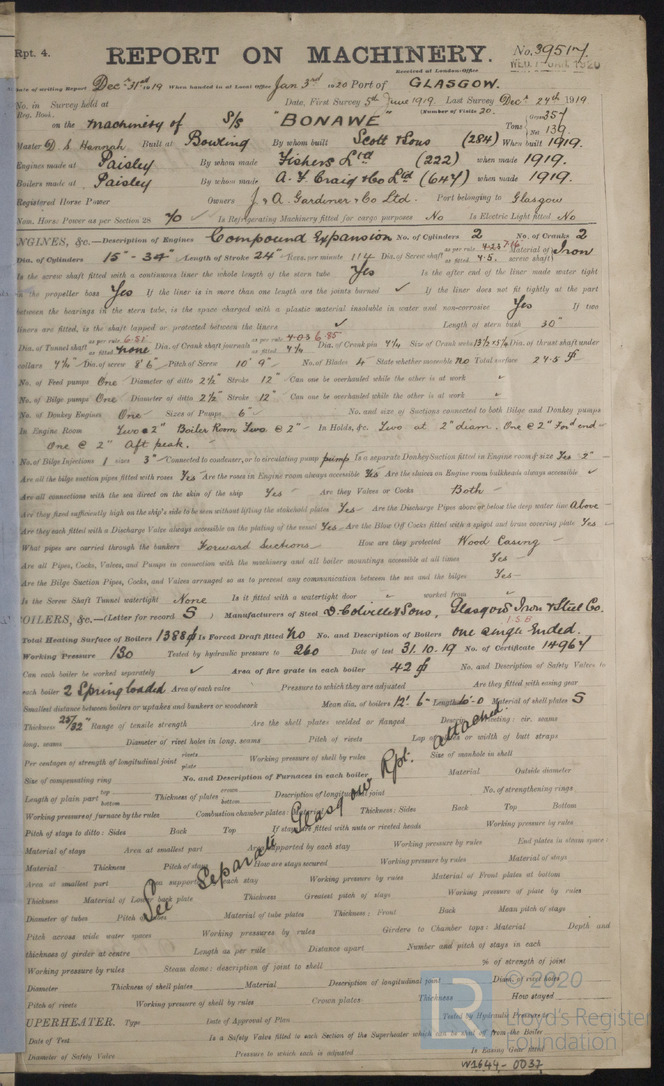 Rpt. 4.
REPORT ON MACHINERY.
No. 39517
WED. 7 JAN. 1920
Received at London Office
Date of writing Report Dec. 31st 1919 When handed in at Local Office Jan 3rd 1920 Port of GLASGOW.
No. in Survey held at Date, First Survey 5th June 1919 Last Survey Dec. 24th 1919
Reg. Book. (Number of Visits 20.
on the machinery of S/S "BONAWE" Tons Gross 357 Net 139
Master D S Hannah Built at Bowling By whom built Scott & Sons (284) When built 1919.
Engines made at Paisley By whom made Fishers Ltd (222) when made 1919.
Boilers made at Paisley By whom made A. F. Craig & Co Ltd (647) when made 1919.
Registered Horse Power Owners J. & A. Gardiner & Co Ltd. Port belonging to Glasgow
Nom. Horse Power as per Section 28 70 Is Refrigerating Machinery fitted for cargo purposes No Is Electric Light fitted No
ENGINES, &c.—Description of Engines Compound Expansion No. of Cylinders 2 No. of Cranks 2
Dia. of Cylinders 15" - 34" Length of Stroke 24" Revs. per minute 114 Dia. of Screw shaft as per rule 4.23 7.16 as fitted 7.5. Material of screw shaft Iron
Is the screw shaft fitted with a continuous liner the whole length of the stern tube Yes Is the after end of the liner made water tight
in the propeller boss Yes If the liner is in more than one length are the joints burned ✓ If the liner does not fit tightly at the part
between the bearings in the stern tube, is the space charged with a plastic material insoluble in water and non-corrosive Yes If two
liners are fitted, is the shaft lapped or protected between the liners ✓ Length of stern bush 30"
Dia. of Tunnel shaft as per rule 6.51 as fitted none Dia. of Crank shaft journals as per rule 6.85 as fitted 7 1/4 Dia. of Crank pin 7 1/4 Size of Crank webs Dia. of thrust shaft under
collars 7 1/4 Dia. of screw 8' 6" Pitch of Screw 10' 9" No. of Blades 4 State whether moveable No Total surface 24.5
No. of Feed pumps One Diameter of ditto 2 1/2" Stroke 12" Can one be overhauled while the other is at work
No. of Bilge pumps One Diameter of ditto 2 1/2" Stroke 12" Can one be overhauled while the other is at work
No. of Donkey Engines One Sizes of Pumps 6" No. and size of Suctions connected to both Bilge and Donkey pumps
In Engine Room Two @ 2" Boiler Room Two @ 2" In Holds, &c. Two at 2" diam. One @ 2" For'd end
One @ 2" Aft peak.
No. of Bilge Injections 1 sizes 3" Connected to condenser, or to circulating pump pump Is a separate Donkey Suction fitted in Engine room & size Yes 2"
Are all the bilge suction pipes fitted with roses Yes Are the roses in Engine room always accessible Yes Are the sluices on Engine room bulkheads always accessible ✓
Are all connections with the sea direct on the skin of the ship Yes Are they Valves or Cocks Both
Are they fixed sufficiently high on the ship's side to be seen without lifting the stokehold plates Yes Are the Discharge Pipes above or below the deep water line Above
Are they each fitted with a Discharge Valve always accessible on the plating of the vessel Yes Are the Blow Off Cocks fitted with a spigot and brass covering plate Yes
What pipes are carried through the bunkers Forward Suctions How are they protected Wood Casing
Are all Pipes, Cocks, Valves, and Pumps in connection with the machinery and all boiler mountings accessible at all times Yes
Are the Bilge Suction Pipes, Cocks, and Valves arranged so as to prevent any communication between the sea and the bilges Yes
Is the Screw Shaft Tunnel watertight None Is it fitted with a watertight door worked from
BOILERS, &c.—(Letter for record S) Manufacturers of Steel D. Colville & Sons, Glasgow Iron & Steel Co.
Total Heating Surface of Boilers 1388 Is Forced Draft fitted No No. and Description of Boilers one single Ended. 1 S.B
Working Pressure 130 Tested by hydraulic pressure to 260 Date of test 31.10.19 No. of Certificate 14967
Can each boiler be worked separately ✓ Area of fire grate in each boiler 42 No. and Description of Safety Valves to
each boiler 2 Spring loaded Area of each valve Pressure to which they are adjusted Are they fitted with easing gear
Smallest distance between boilers or uptakes and bunkers or woodwork Mean dia. of boilers 12' 6" Length 10'-0 Material of shell plates S
Thickness 25/32" Range of tensile strength Are the shell plates welded or flanged Descrip. of riveting: cir. seams
long. seams Diameter of rivet holes in long. seams Pitch of rivets Lap of plates or width of butt straps
Per centages of strength of longitudinal joint rivets plate Working pressure of shell by rules Size of manhole in shell
Size of compensating ring No. and Description of Furnaces in each boiler Material Outside diameter
Length of plain part top bottom Thickness of plates crown bottom Description of longitudinal joint No. of strengthening rings
Working pressure of furnace by the rules Combustion chamber plates: Material Thickness: Sides Back Top Bottom
Pitch of stays to ditto: Sides Back Top If stays are fitted with nuts or riveted heads Working pressure by rules
Material of stays Area at smallest part Area supported by each stay Working pressure by rules End plates in steam space:
Material Thickness Pitch of stays How are stays secured Working pressure by rules Material of stays
Area at smallest part Area supported by each stay Working pressure by rules Material of Front plates at bottom
Thickness Material of Lower back plate Thickness Greatest pitch of stays Working pressure of plate by rules
Diameter of tubes Pitch of tubes Material of tube plates Thickness: Front Back Mean pitch of stays
Pitch across wide water spaces Working pressures by rules Girders to Chamber tops: Material Depth and
thickness of girder at centre Length as per rule Distance apart Number and pitch of stays in each
Working pressure by rules Steam dome: description of joint to shell % of strength of joint
Diameter Thickness of shell plates Material Description of longitudinal joint Diam. of rivet holes
Pitch of rivets Working pressure of shell by rules Crown plates Thickness How stayed
See Separate Glasgow Rpt. attached.
SUPERHEATER. Type Date of Approval of Plan Tested by Hydraulic Pressure to
Date of Test Is a Safety Valve fitted to each Section of the Superheater which can be shut off from the Boiler
Diameter of Safety Valve Pressure to which each is adjusted Is Easing Gear fitted
© 2020
Lloyd's Register
Foundation
W1644-0037